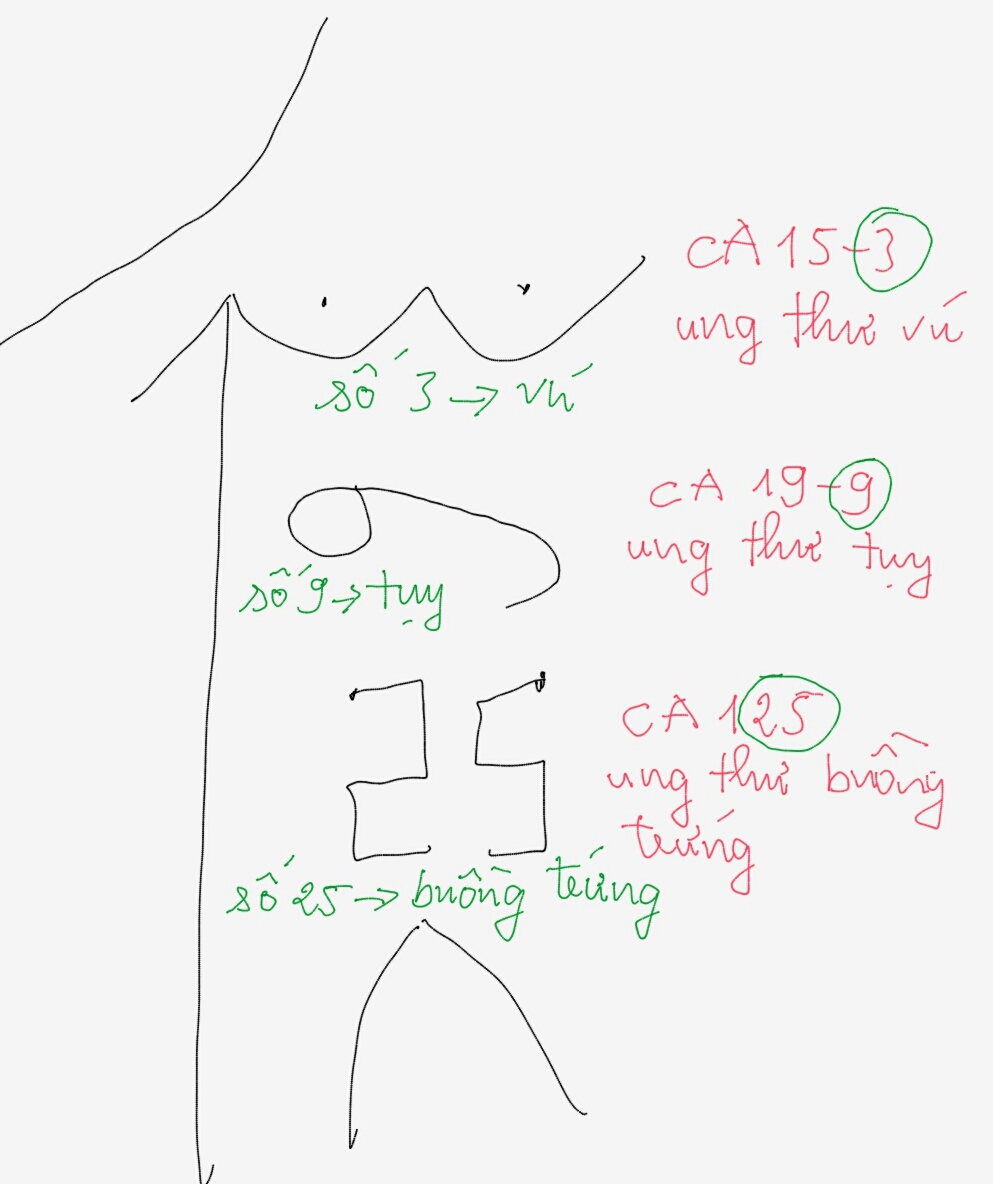 CA 15-3
ung thư vú
số 3 → vú
CA 19-9
ung thư tụy
số 9 → tụy
CA 125
ung thư buồng
trứng
số 25 → buồng trứng